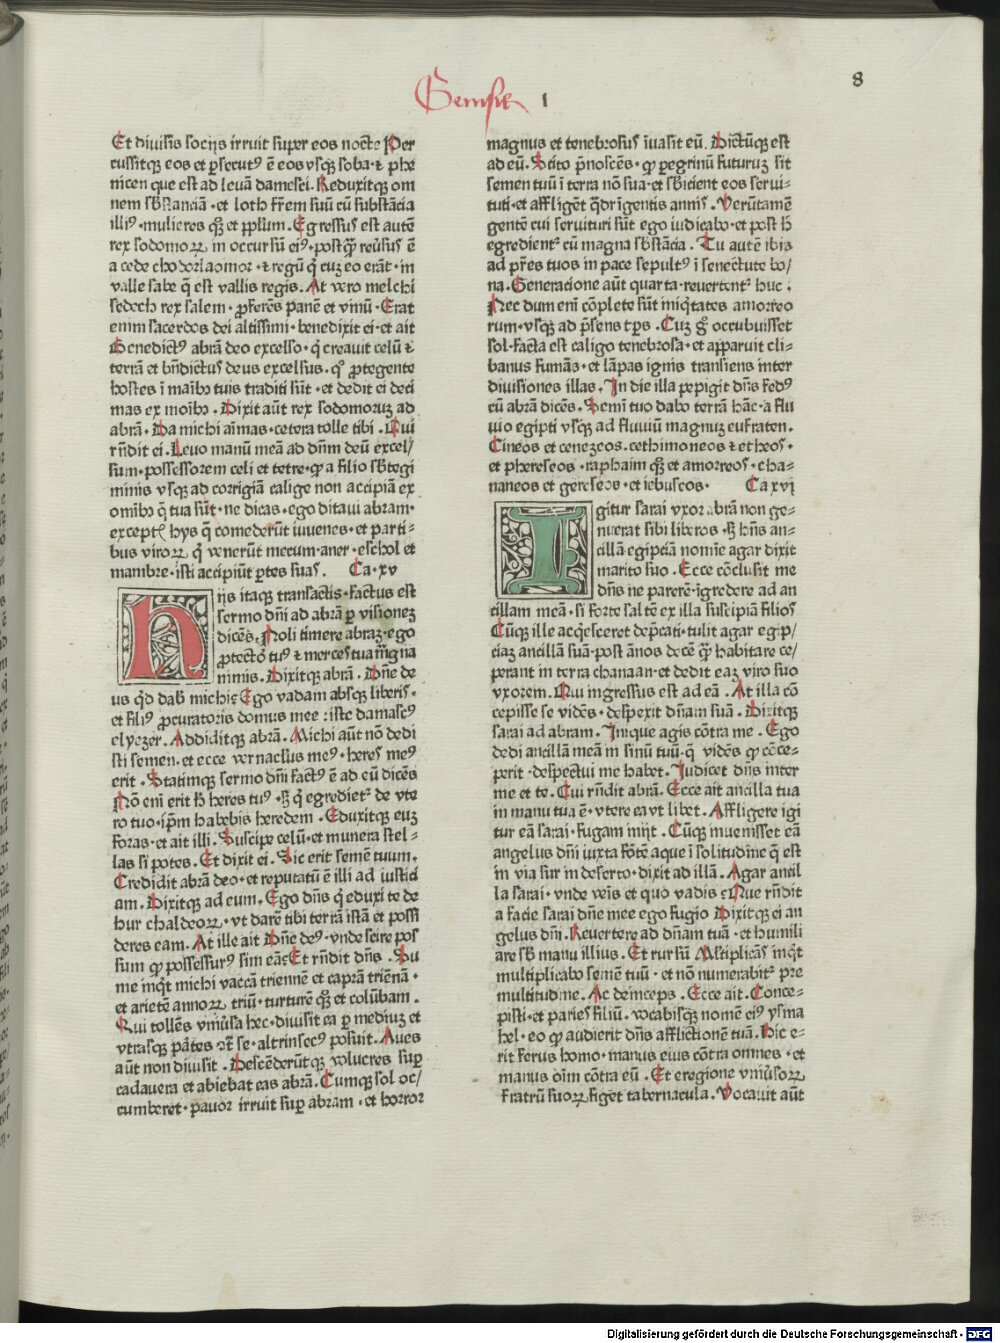 Genesis 1
8
Et diuisis socijs irruit super eos nocte Per
cussitqꝫ eos et ꝑsecutꝰ ē eos vsqꝫ soba·⁊ phe
nicen que est ad leuā damesci. Reduxitqꝫ om
nem sb̄stanciā·et loth fr̄em suū cū substātia
illiꝰ·mulieres qꝫ et pp̄lum. Egressus est autē
rex sodomoꝝ in occursū eiꝰ·postqꝫ̄ reūsus ē
a cede chodorlaomor·⁊ regū q̄ cuꝫ eo erāt·in
valle sabe q̄ est vallis regis. At vero melchi
sedech rex salem·ꝓferēs panē et vinū·Erat
enim sacerdos dei altissimi·benedixit ei·et ait
Benedictꝰ abrā deo excelso·q̄ creauit celū ⁊
terrā et bn̄dictus deus excelsus·qͦ ꝓtegente
hostes ī maībꝫ tuis traditi sūt·et dedit ei deci
mas ex moībꝫ·Dixit aūt rex sodomoruꝫ ad
abrā·Da michi aīmas·cetera tolle tibi·Qui
rn̄dit ei·Leuo manū meā ad dn̄m deū excel/
sum·possessorem celi et tetre·ꝙ a filo sb̄tegi
minis vsqꝫ ad corrigiā calige non accipiā ex
om̄ibꝫ q̄ tua sūt·ne dicas·ego ditaui abram·
exceptꝭ hys q̄ comederūt iuuenes·et parti=
bus viroꝝ q̄ venerūt mecum·aner·eschol et
mambre·isti accipiūt ꝑtes suas. Ca·xv
Hijs itaqꝫ transactis·factus est
sermo dn̄i ad abrā ꝑ visioneꝫ
dicēs·Noli timere abraꝫ·ego
ꝓtectoͬ tuꝰ ⁊ merces tua m̄gna
nimis. Dixitqꝫ abrā. Dn̄e de
us qͥd dabꝭ michi? Ego vadam absqꝫ liberis·
et filiꝰ ꝓcuratoris domus mee : iste damascꝰ
elyezer. Addiditqꝫ abrā. Michi aūt nō dedi
sti semen·et ecce vernaclus meꝰ·heres meꝰ
erit. Statimqꝫ sermo dn̄i factꝰ ē ad eū dicēs
Nō em̄ erit h̄ heres tuꝰ·sꝫ q̄ egredietᷣ de vte
ro tuo·ip̄m habebis heredem. Eduxitqꝫ euꝫ
foras·et ait illi. Suscipe celū·et munera stel=
las si potes. Et dixit ei. Sic erit semē tuum.
Credidit abrā deo·et reputatū ē illi ad iustici
am. Dixitqꝫ ad eum. Ego dn̄s q̄ eduxi te de
hur chaldeoꝝ·vt darē tibi terrā istā et possi
deres eam. At ille ait Dn̄e deꝰ·vnde scire pos
sum ꝙ possessurꝰ sim eā? Et rn̄dit dn̄s. Su
me inqͥt michi vaccā triennē et caprā triēnā·
et arietē annoꝝ triū·turturē qꝫ̄ et colūbam.
Qui tollēs vniūsa hec·diuisit ea ꝑ mediuꝫ et
vtrasqꝫ pātes ꝯtᷓ se·altrinsecꝰ posuit. Aues
aūt non diuisit. Descēderūtqꝫ volucres supͬ
cadauera et abiebat eas abrā. Cumqꝫ sol oc/
cumberet·pauor irruit supͬ abram·et horror
magnus et tenebrosus īuasit eū. Dictūqꝫ est
ad eū. Scito p̄noscēs·ꝙ ꝑegrinū futuruꝫ sit
semen tuū ī terra nō sua·et sb̄icient eos serui=
tuti·et affligēt qͣdrīgentis annis. Verūtamē
gentē cui seruituri sūt ego iudicabo·et post h̄
egredientᷣ cū magna sb̄stācia. Tu autē ibis
ad pr̄es tuos in pace sepultꝰ ī senectute bo/
na. Generatione aūt quarta·reuertentᷣ huc.
Nec dum em̄ cōplete sūt iniqͥtates amorreo
rum·vsqꝫ ad p̄sens tꝑs. Cuꝫ gͦ occubuisset
sol·facta est caligo tenebrosa·et apparuit cli=
banus fumās·et lāpas ignis transiens inter
diuisiones illas. In die illa pepigit dn̄s fedꝰ
cū abrā dicēs. Semī tuo dabo terrā hāc·a flu
uio egipti vsqꝫ ad fluuiū magnuꝫ eufraten.
Cineos et cenezeos·cethimoneos ⁊ etheos·
et phereseos·raphaim qꝫ̄ et amorreos·cha=
naneos et gerseseos·et iebuseos. Ca xvi
Igitur sarai vxor abrā non ge=
nuerat sibi liberos·sꝫ hn̄s an=
cillā egipciā nomīe agar dixit
marito suo. Ecce cōclusit me
dn̄s ne parerē·īgredere ad an
cillam meā·si forte saltē ex illa suscipiā filios
Cūqꝫ ille acqͥesceret dep̄cāti·tulit agar egip/
ciaꝫ ancillā suā·post ānos decē qͣ̄ habitare ce/
perant in terra chanaan·et dedit eaꝫ viro suo
vxorem. Qui ingressus est ad eā. At illa cō
cepisse se vidēs·despexit dn̄am suā. Dixitqꝫ
sarai ad abram. Inique agis cōtra me. Ego
dedi ancillā meā in sinū tuū·q̄ vidēs ꝙ cōce=
perit·despectui me habet. Iudicet dn̄s inter
me et te. Cui rn̄dit abrā. Ecce ait ancilla tua
in manu tua ē·vtere ea vt libet. Affligere igi
tur eā sarai·fugam iniit. Cūqꝫ inuenisset eā
angelus dn̄i iuxta fōtē aque ī solitudīne q̄ est
in via sur in deserto·dixit ad illā. Agar ancil
la sarai·vnde venis et quo vadis? Que rn̄dit
a facie sarai dn̄e mee ego fugio Dixitqꝫ ei an
gelus dn̄i. Reuertere ad dn̄am tuā·et humili
are sb̄ manu illius. Et rursū Multiplicās inqͥt
multiplicabo semē tuū·et nō numerabitᷣ pre
multitudīne. Ac deinceps. Ecce ait. Conce=
pisti·et paries filiū. vocabisqꝫ nomē eiꝰ ysma
hel·eo ꝙ audierit dn̄s afflictionē tuā. Hic e=
rit ferus homo·manus eius cōtra omnes·et
manus oīm cōtra eū. Et eregione vniūsoꝝ
fratrū suoꝝ figet tabernacula. Vocauit aūt
Digitalisierung gefördert durch die Deutsche Forschungsgemeinschaft - DFG